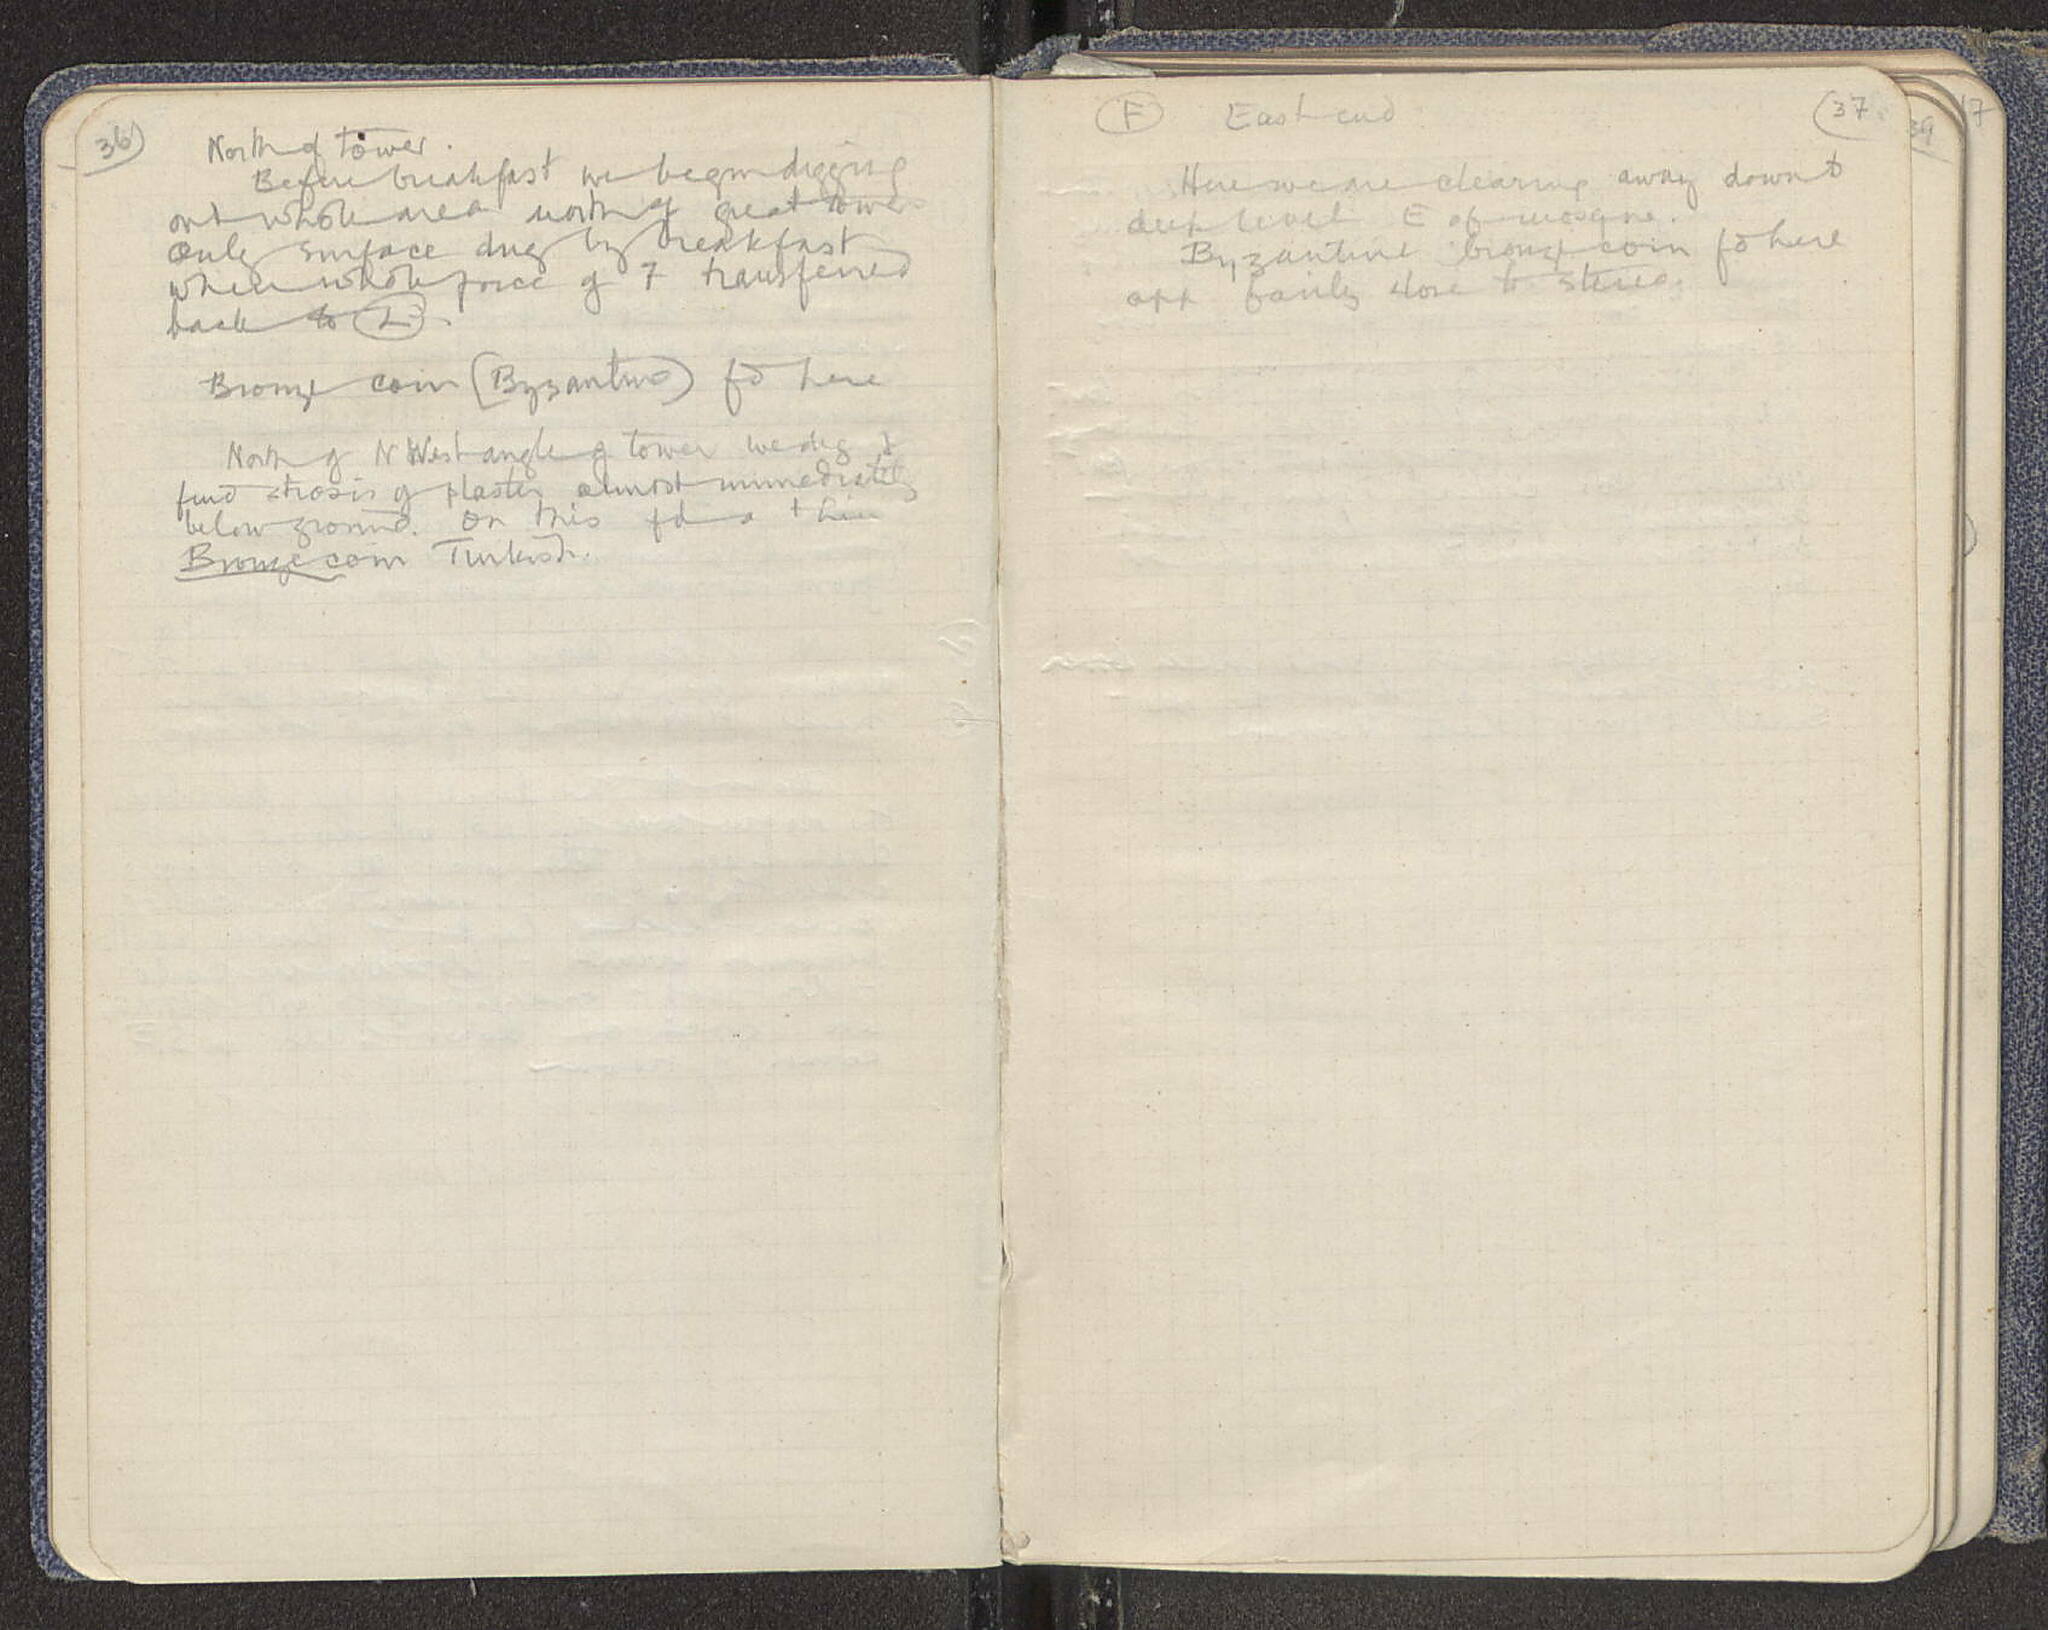 36
North of tower.
Before breakfast we begin digging
out whole area north of great tower
Only surface dug by breakfast
when whole force of 7 transferred
back to
Bronze coin (Byzantine) fd here
North of N West angle of tower we dig &
find strosis of plaster almost immediately
below ground. On this fd a thin
Bronze coin Turkish.
F East end 37
Here we are clearing away down to
deep level E of mosque.
Byzantine bronze coin fd here
fairly close to
39
17